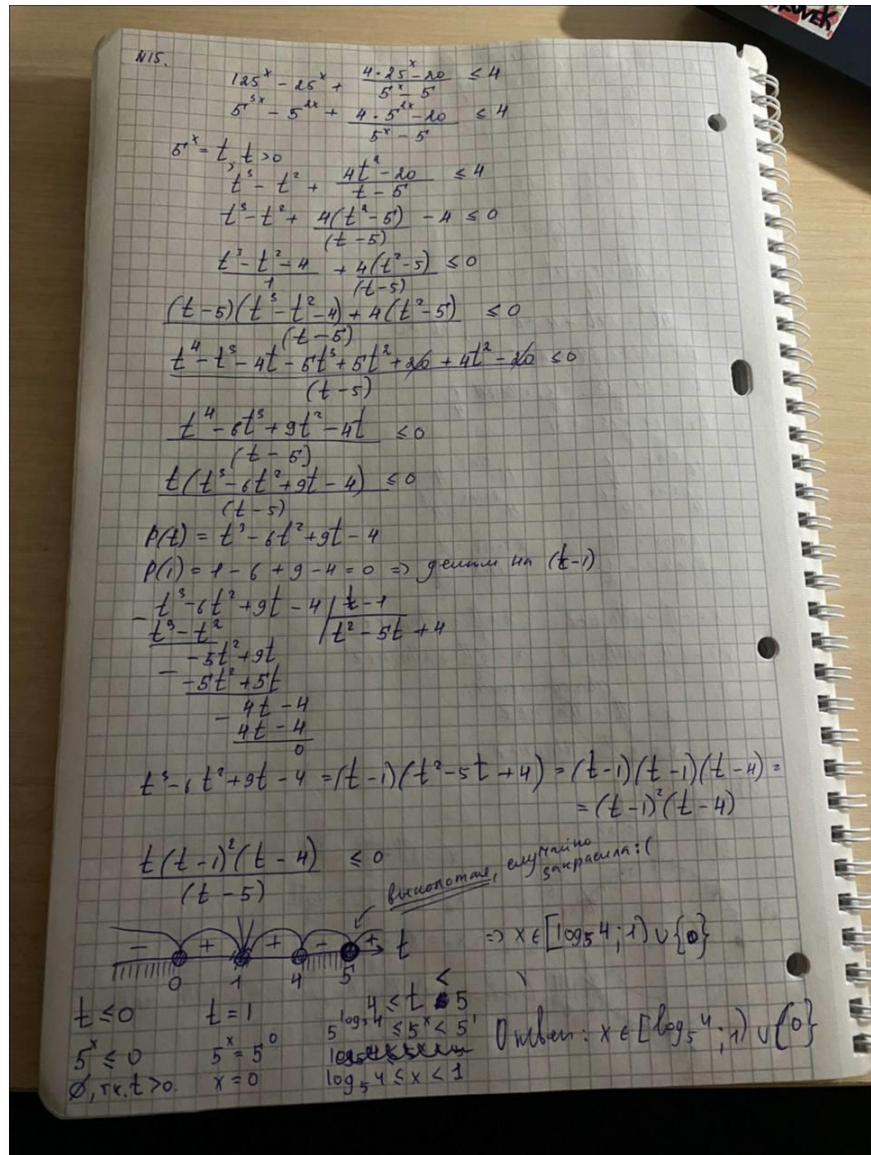 N15.
125^x − 25^x + (4·25^x − 20)/(5^x − 5) ≤ 4
5^{3x} − 5^{2x} + (4·5^{2x} − 20)/(5^x − 5) ≤ 4
5^x = t, t > 0
t³ − t² + (4t² − 20)/(t − 5) ≤ 4
t³ − t² + 4(t² − 5)/(t − 5) − 4 ≤ 0
(t³ − t² − 4)/1 + 4(t² − 5)/(t − 5) ≤ 0
((t − 5)(t³ − t² − 4) + 4(t² − 5))/(t − 5) ≤ 0
(t⁴ − t³ − 4t − 5t³ + 5t² + 20 + 4t² − 20)/(t − 5) ≤ 0
(t⁴ − 6t³ + 9t² − 4t)/(t − 5) ≤ 0
t(t³ − 6t² + 9t − 4)/(t − 5) ≤ 0
P(t) = t³ − 6t² + 9t − 4
P(1) = 1 − 6 + 9 − 4 = 0 => делим на (t−1)
− t³ − 6t² + 9t − 4 | t − 1
t³ − t² | t² − 5t + 4
− −5t² + 9t
−5t² + 5t
− 4t − 4
4t − 4
0
t³ − 6t² + 9t − 4 = (t − 1)(t² − 5t + 4) = (t − 1)(t − 1)(t − 4) =
= (t − 1)²(t − 4)
t(t − 1)²(t − 4)/(t − 5) ≤ 0
выколотая, случайно
закрасила :(
− + + − + t
0 1 4 5
=> x ∈ [log₅4; 1) ∪ {0}
t ≤ 0 t = 1 4 ≤ t < 5
5^x ≤ 0 5^x = 5^0 5^{log₅4} ≤ 5^x < 5^1
∅, т.к. t > 0. x = 0 log₅4 ≤ x < 1
Ответ: x ∈ [log₅4; 1) ∪ {0}